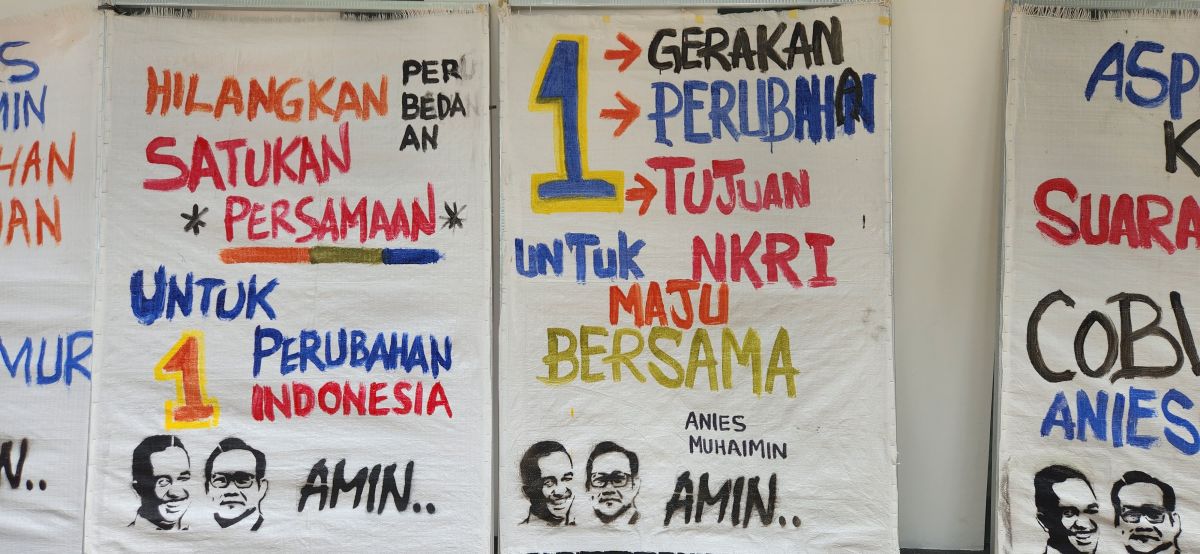 HILANGKAN PERBEDAAN
SATUKAN
* PERSAMAAN *
UNTUK
1 PERUBAHAN
INDONESIA
AMIN..
1 → GERAKAN
→ PERUBAHAN
→ TUJUAN
UNTUK NKRI
MAJU
BERSAMA
ANIES
MUHAIMIN
AMIN..
ASP
K
SUARA
ANIES